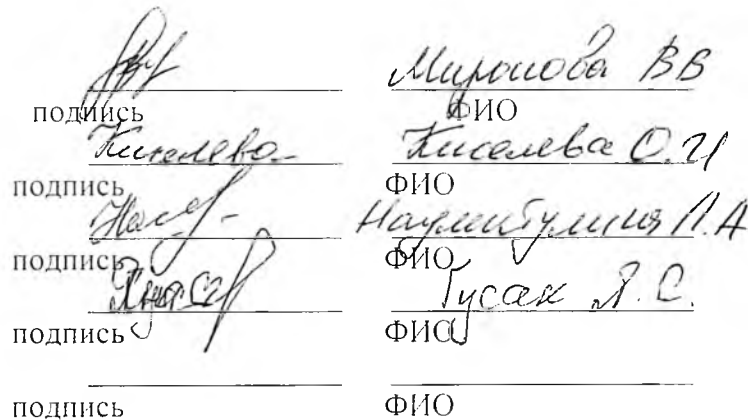 Миронова ВВ
подпись ФИО
Киселева Киселева О.И
подпись ФИО
Л.А
подпись ФИО
Гусак Я.С.
подпись ФИО
подпись ФИО